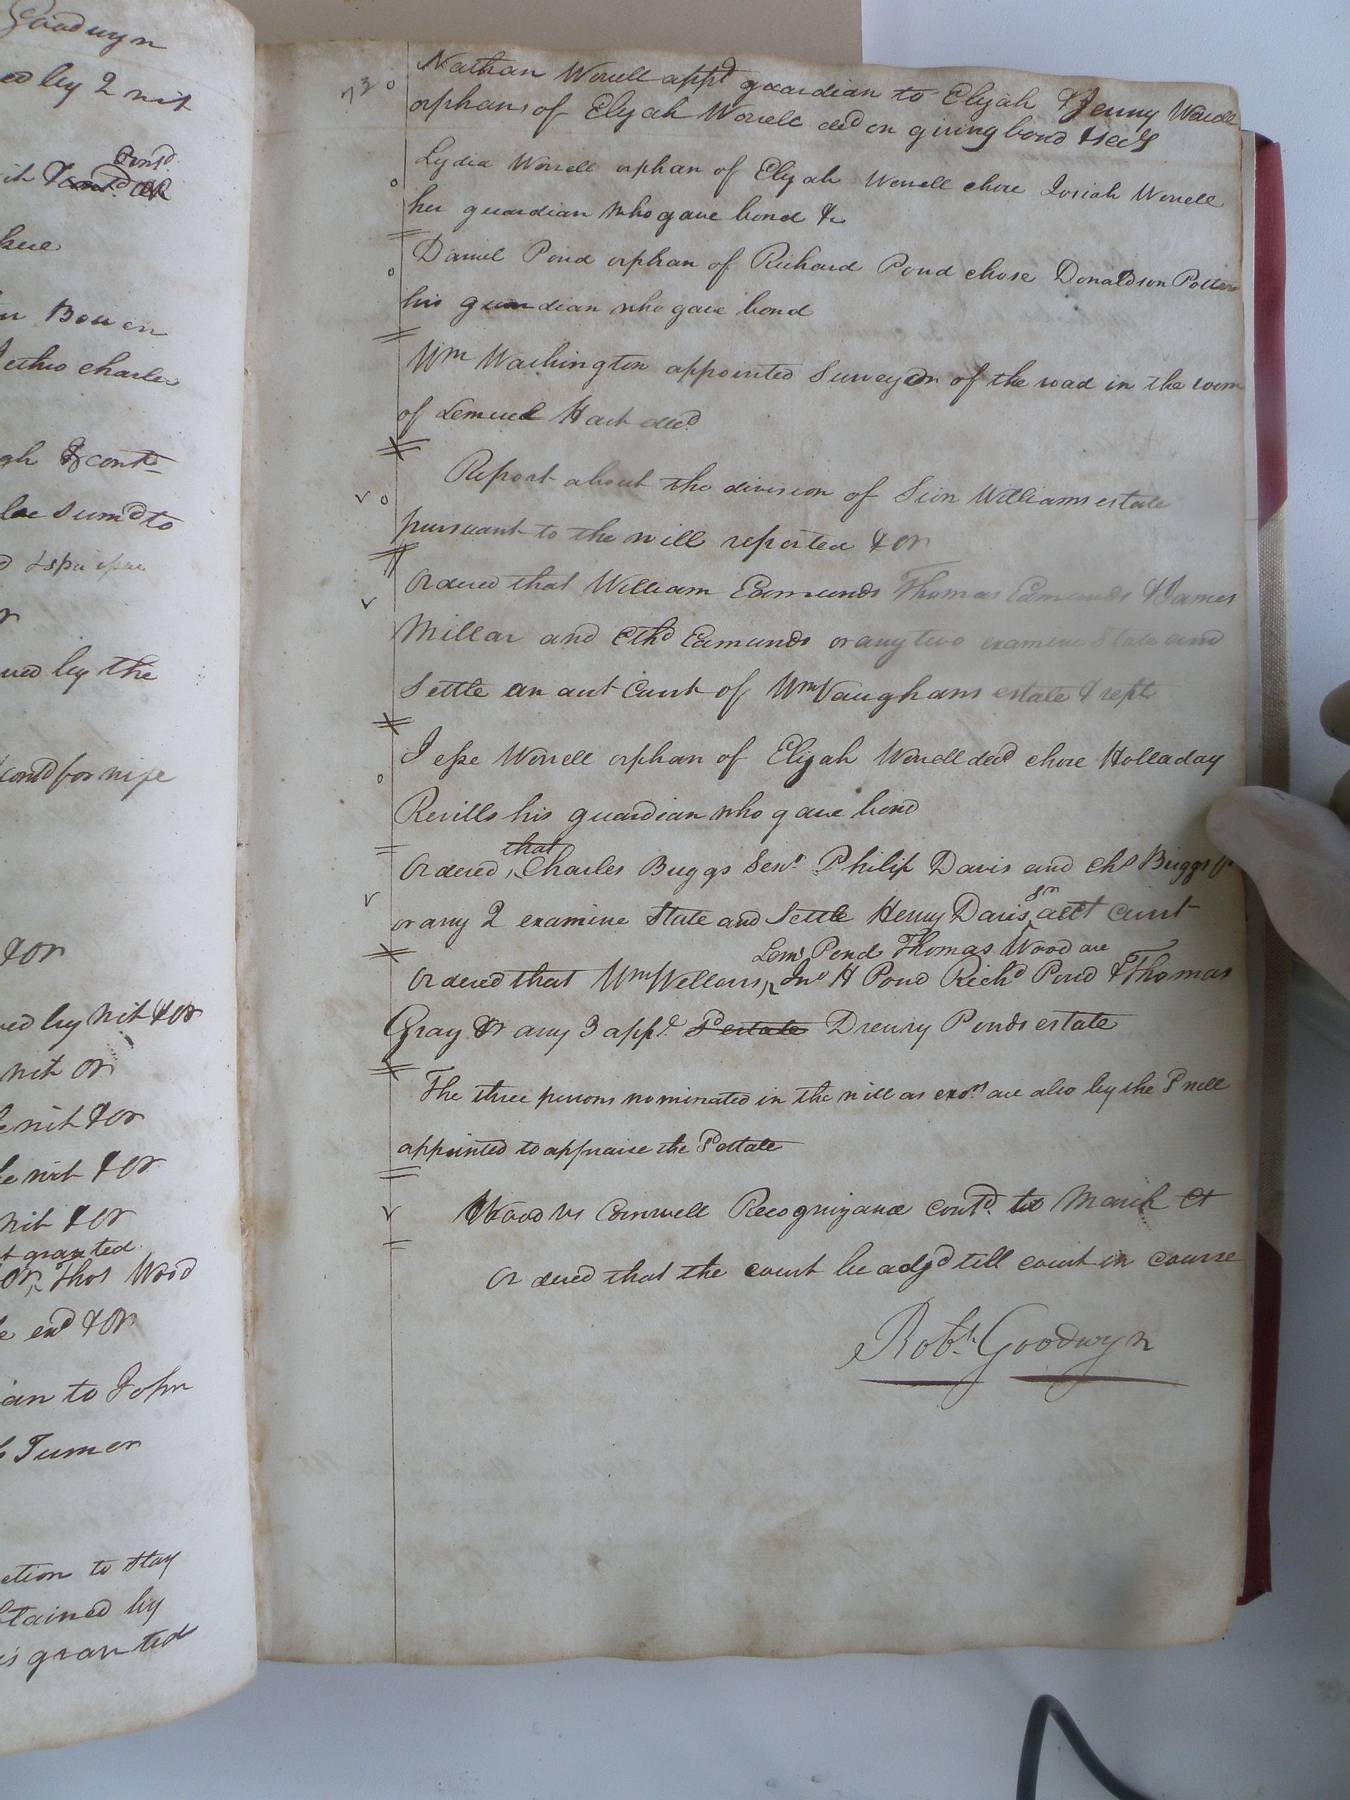 Goodwyn
ed by 2 wit
Contd
it & contd OR
kee
Bowen
Jethro Charles
gh & contd
sumd to
ved by the
contd for wife
& OR
ved by wit & OR
wit OR
wit & OR
wit & OR
wit & OR
granted
OR, Thos Wood
exd & OR
ian to John
Turner
ction to stay
tained by
is granted
73
Nathan Worrell appd guardian to Elijah & Jenny Worrell
orphans of Elijah Worrell decd on giving bond & secy
Lydia Worrell orphan of Elijah Worrell chose Josiah Worrell
her guardian who gave bond &c
Daniel Pond orphan of Richard Pond chose Donaldson Potter
his guardian who gave bond
Wm Washington appointed Surveyor of the road in the room
of Lemuel Hart decd
Report about the division of Sion Williams estate
pursuant to the will reported & OR
Ordered that William Edmunds Thomas Edmunds & James
Millar and Ethd Edmunds or any two examine State and
Settle an act Curt of Wm Vaughans estate & rept
Jesse Worrell orphan of Elijah Worrell decd chose Holladay
Revills his guardian who gave bond
that
Ordered, Charles Buggs Senr Philip Davis and Chs Buggs Jr
or any 2 examine State and Settle Henry Davis acct curt
Sr
Leml Pond Thomas Wood are
Ordered that Wm Wellons, Jno H Pond Richd Pond & Thomas
Gray or any 3 appr Sd estate Drewry Ponds estate
The three persons nominated in the will as exors are also by the Sd will
appointed to appraise the Sd estate
Wood vs Cornwell Recognizance contd to March Ct
Ordered that the court be adjd till court in course
Robt. Goodwyn